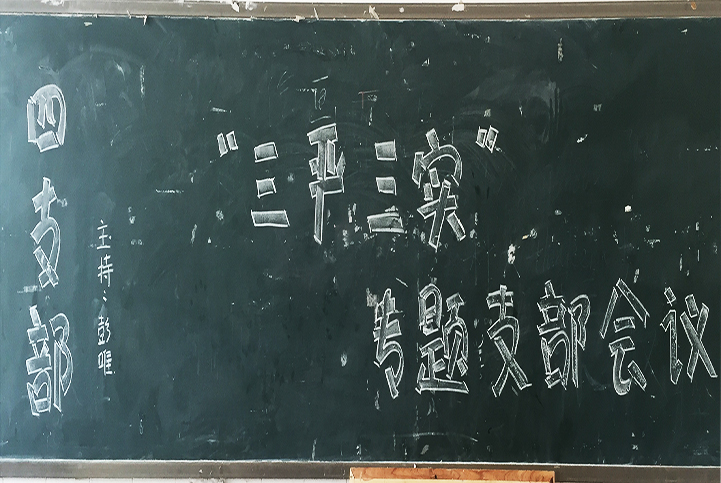 四支部
主持:彭唯
"三平三实"
专题支部会议